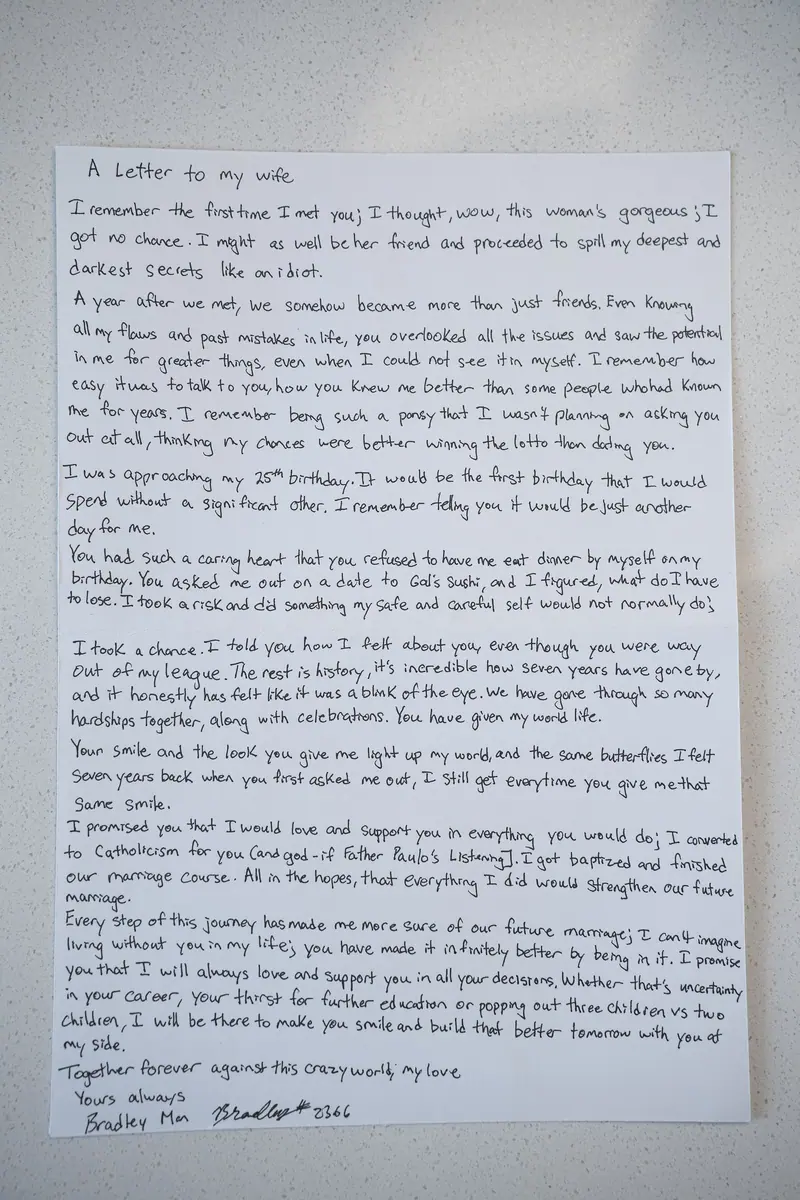 A Letter to my wife
I remember the first time I met you; I thought, wow, this woman's gorgeous; I
got no chance. I might as well be her friend and proceeded to spill my deepest and
darkest secrets like an idiot.
A year after we met, we somehow became more than just friends. Even knowing
all my flaws and past mistakes in life, you overlooked all the issues and saw the potential
in me for greater things, even when I could not see it in myself. I remember how
easy it was to talk to you, how you knew me better than some people who had known
me for years. I remember being such a pansy that I wasn't planning on asking you
out at all, thinking my chances were better winning the lotto than dating you.
I was approaching my 25th birthday. It would be the first birthday that I would
spend without a significant other. I remember telling you it would be just another
day for me.
You had such a caring heart that you refused to have me eat dinner by myself on my
birthday. You asked me out on a date to Gal's Sushi, and I figured, what do I have
to lose. I took a risk and did something my safe and careful self would not normally do;
I took a chance. I told you how I felt about you, even though you were way
out of my league. The rest is history, it's incredible how seven years have gone by,
and it honestly has felt like it was a blink of the eye. We have gone through so many
hardships together, along with celebrations. You have given my world life.
Your smile and the look you give me light up my world, and the same butterflies I felt
seven years back when you first asked me out, I still get everytime you give me that
same smile.
I promised you that I would love and support you in everything you would do; I converted
to Catholicism for you (and god - if Father Paulo's Listening]. I got baptized and finished
our marriage course. All in the hopes, that everything I did would strengthen our future
marriage.
Every step of this journey has made me more sure of our future marriage; I can't imagine
living without you in my life; you have made it infinitely better by being in it. I promise
you that I will always love and support you in all your decisions. Whether that's uncertainty
in your career, your thirst for further education or popping out three children vs two
children, I will be there to make you smile and build that better tomorrow with you at
my side.
Together forever against this crazy world, my love
Yours always
Bradley Man Bradley # 2366